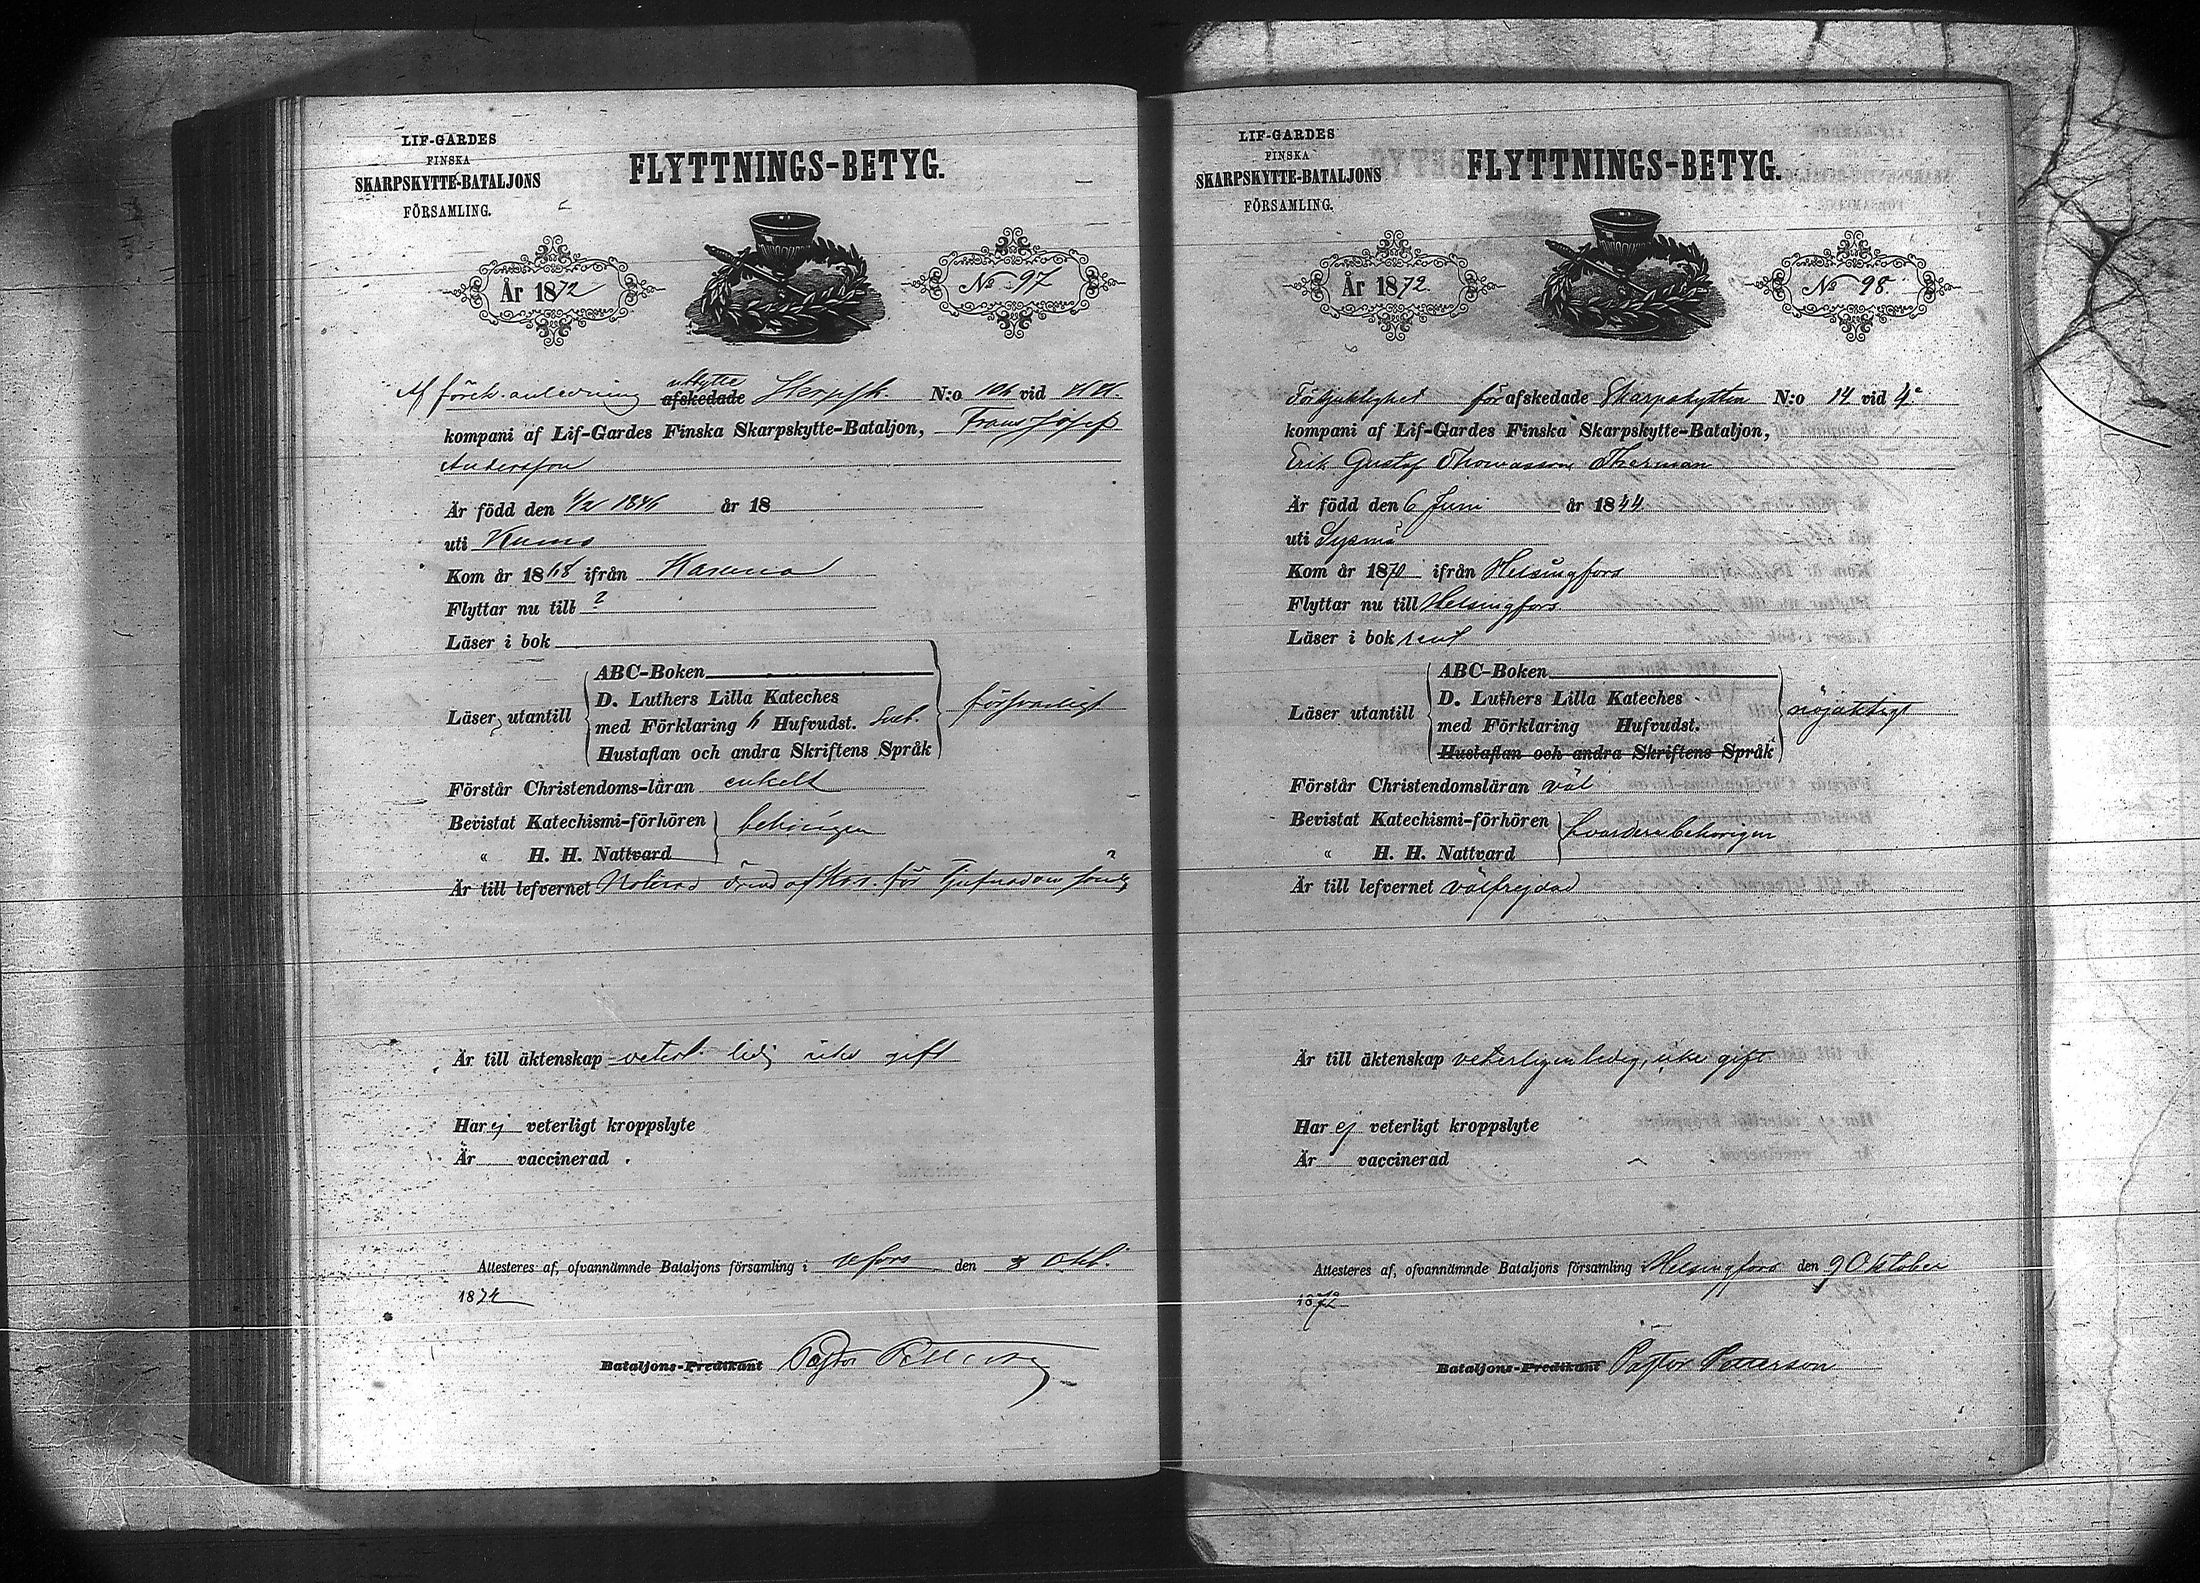 LIF-GARDES
FINSKA
SKARPSKYTTE-BATALJONS
FÖRSAMLING.
FLYTTNINGS-BETYG.
År 1872
No 97
Af förek. anledning utbytte afskedade Skarpsk. N:o vid
kompani af Lif-Gardes Finska Skarpskytte-Bataljon, Frans Josef
Andersson
Är född den 1/2 1846 år 18
uti Kumo
Kom år 1868 ifrån
Flyttar nu till ?
Läser i bok
Läser utantill
ABC-Boken
D. Luthers Lilla Kateches
med Förklaring Hufvudst.
Hustaflan och andra Skriftens Språk
försvarligt
Förstår Christendoms-läran enkelt
Bevistat Katechismi-förhören
« H. H. Nattvard
behörigen
Är till lefvernet
Är till äktenskap veterl. ledig icke gift
Har ej veterligt kroppslyte
Är vaccinerad
Attesteres af, ofvannämnde Bataljons församling i Hfors den 8 Okt.
1872
Bataljons-Predikant Pastor Petterson
LIF-GARDES
FINSKA
SKARPSKYTTE-BATALJONS
FÖRSAMLING.
FLYTTNINGS-BETYG.
År 1872.
No 98.
för afskedade Skarpskytten N:o 14 vid 4e
kompani af Lif-Gardes Finska Skarpskytte-Bataljon,
Erik Gustaf Thomasson Therman
Är född den 6 Juni år 1844
uti Sysmä
Kom år 1870 ifrån Helsingfors
Flyttar nu till Helsingfors
Läser i bok rent
Läser utantill
ABC-Boken
D. Luthers Lilla Kateches
med Förklaring Hufvudst.
Hustaflan och andra Skriftens Språk
nöjaktigt
Förstår Christendomsläran väl
Bevistat Katechismi-förhören
« H. H. Nattvard
hvardera behörigen
Är till lefvernet välfrejdad
Är till äktenskap veterligen ledig, icke gift
Har ej veterligt kroppslyte
Är vaccinerad
Attesteres af, ofvannämnde Bataljons församling Helsingfors den 9 Oktober
1872
Bataljons-Predikant Pastor Petterson